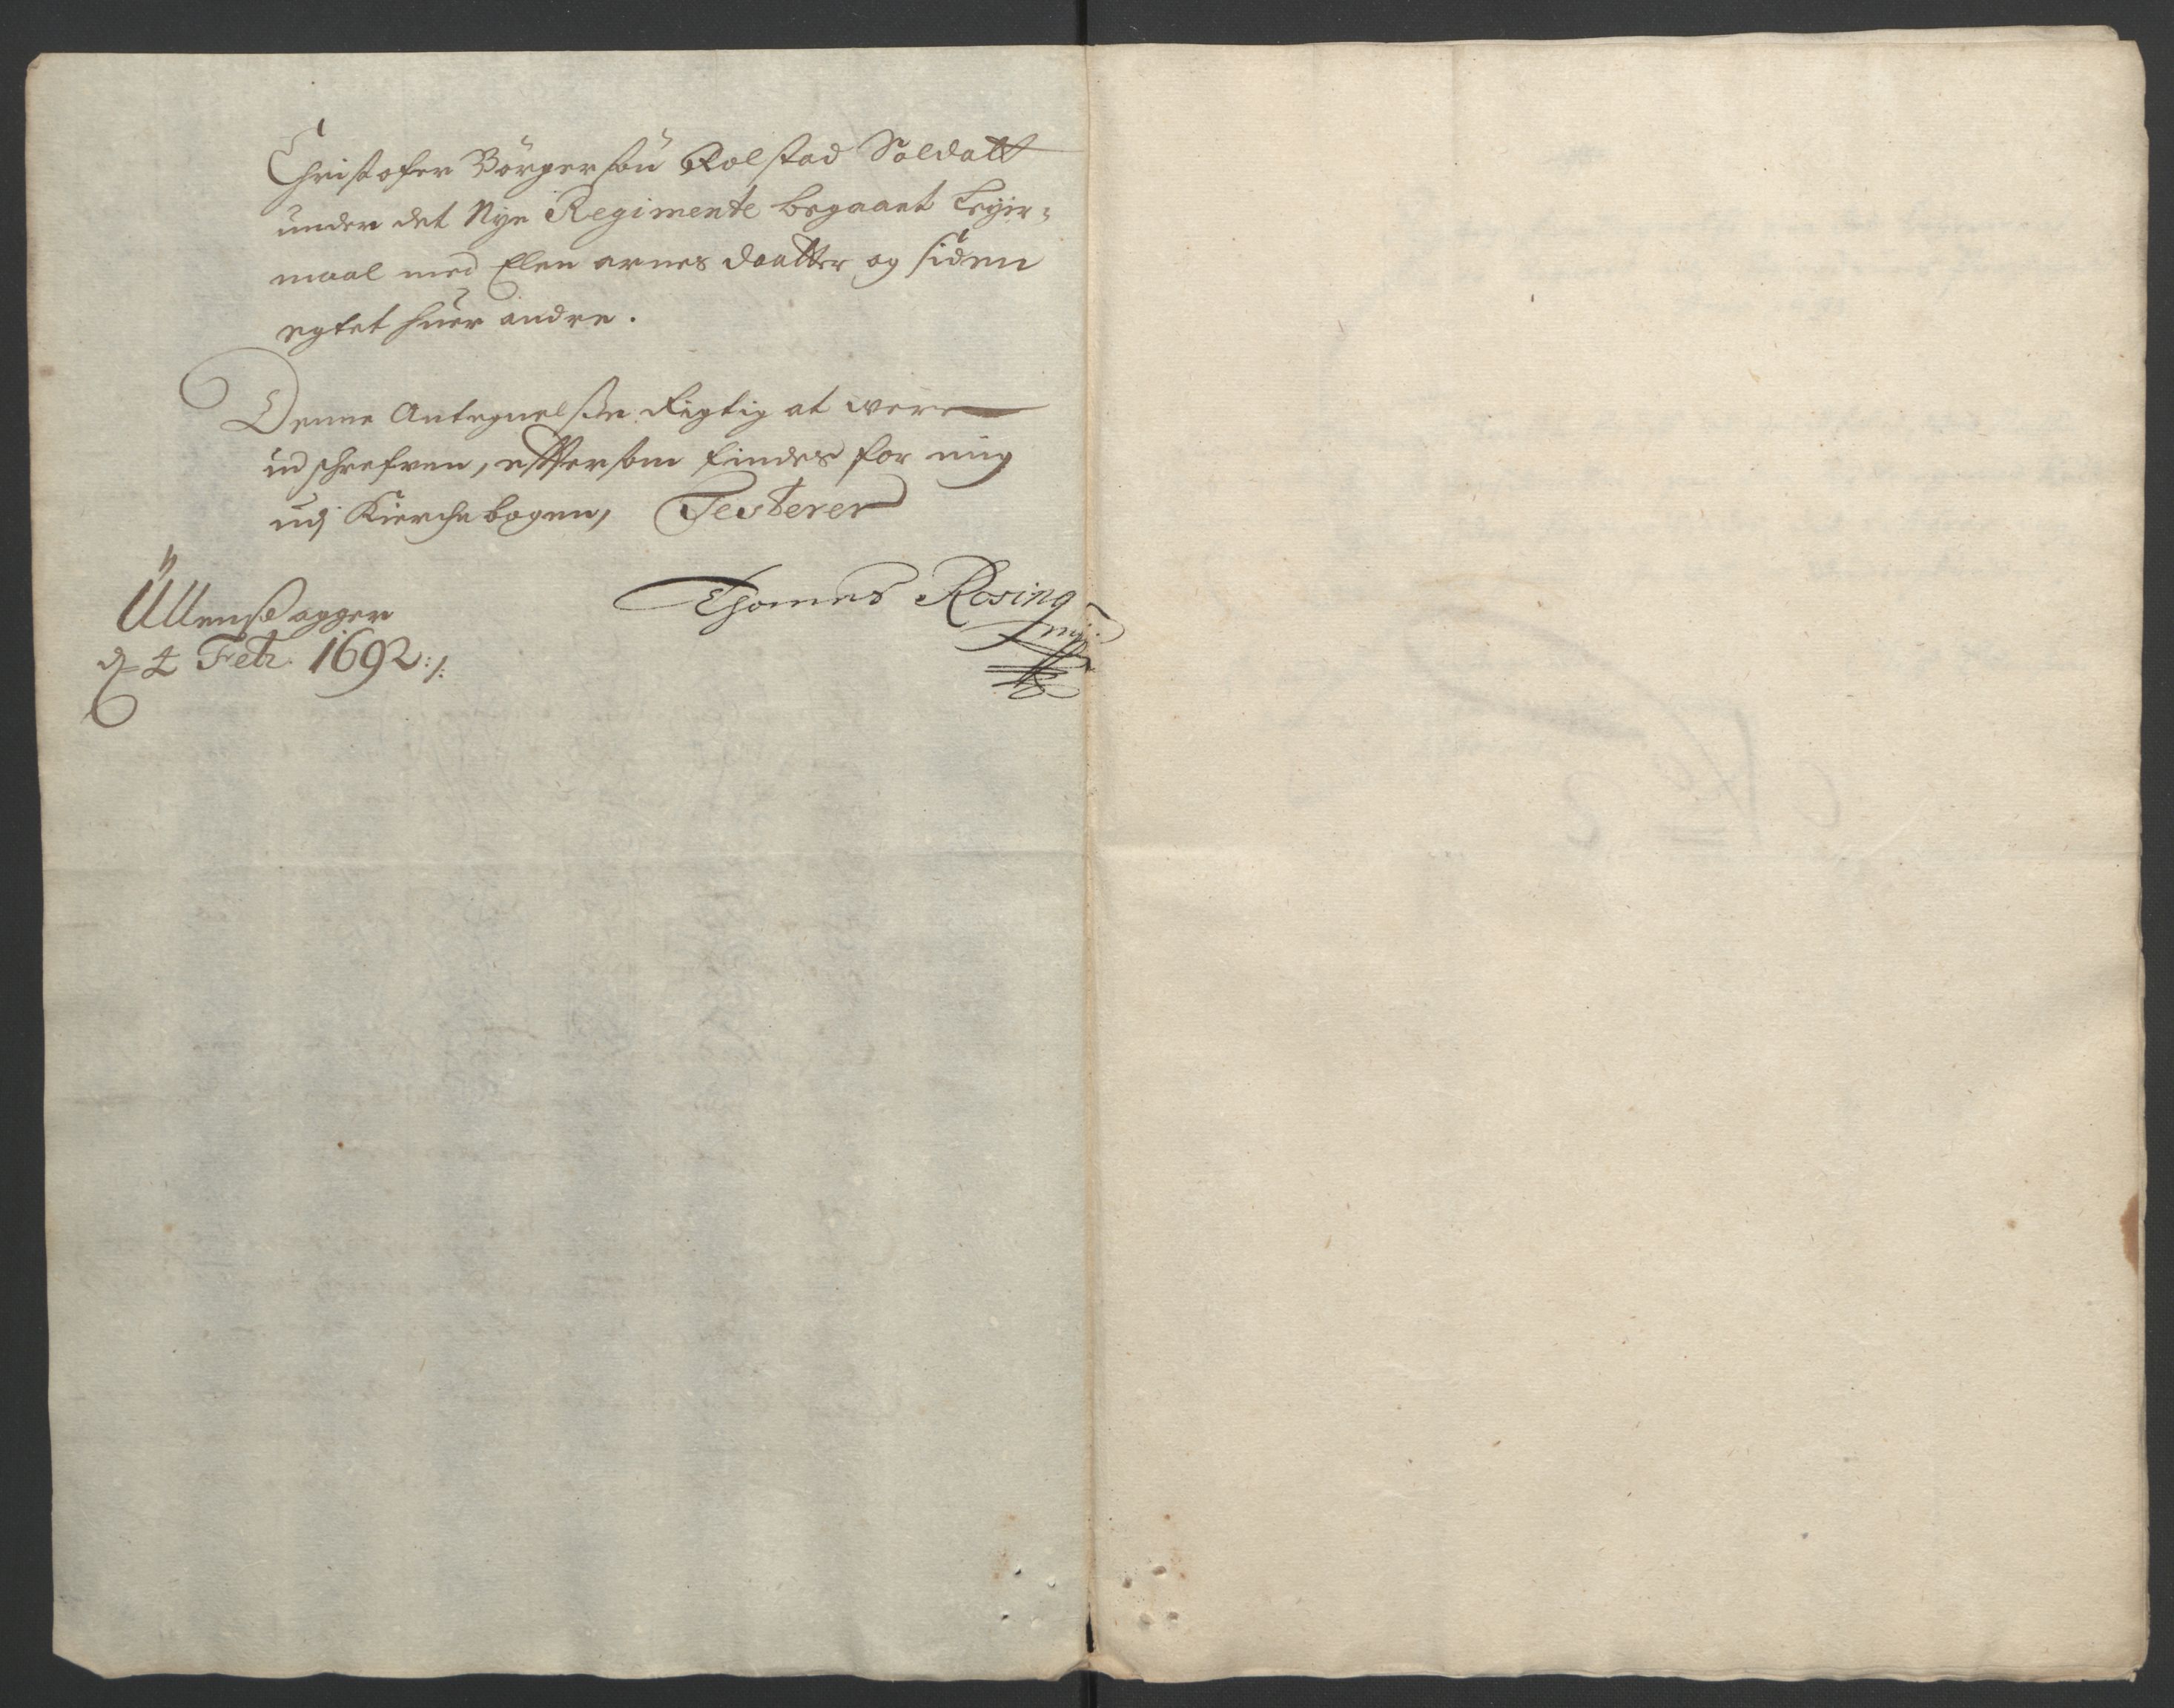 Christofer Börgersøn Rolstad Soldatt
under det Nye Regimente begaaet Leyer=
maal med Elen arnes daatter og siden
egtet huer andre.
Denne Antegnelsse Rigtig at were
indschrefven, efftersom findes for mig
udj Kierchebogen, Testerer
Ullensagger
d 4 Febr. 1692:/:
Thomes Rosing
mp